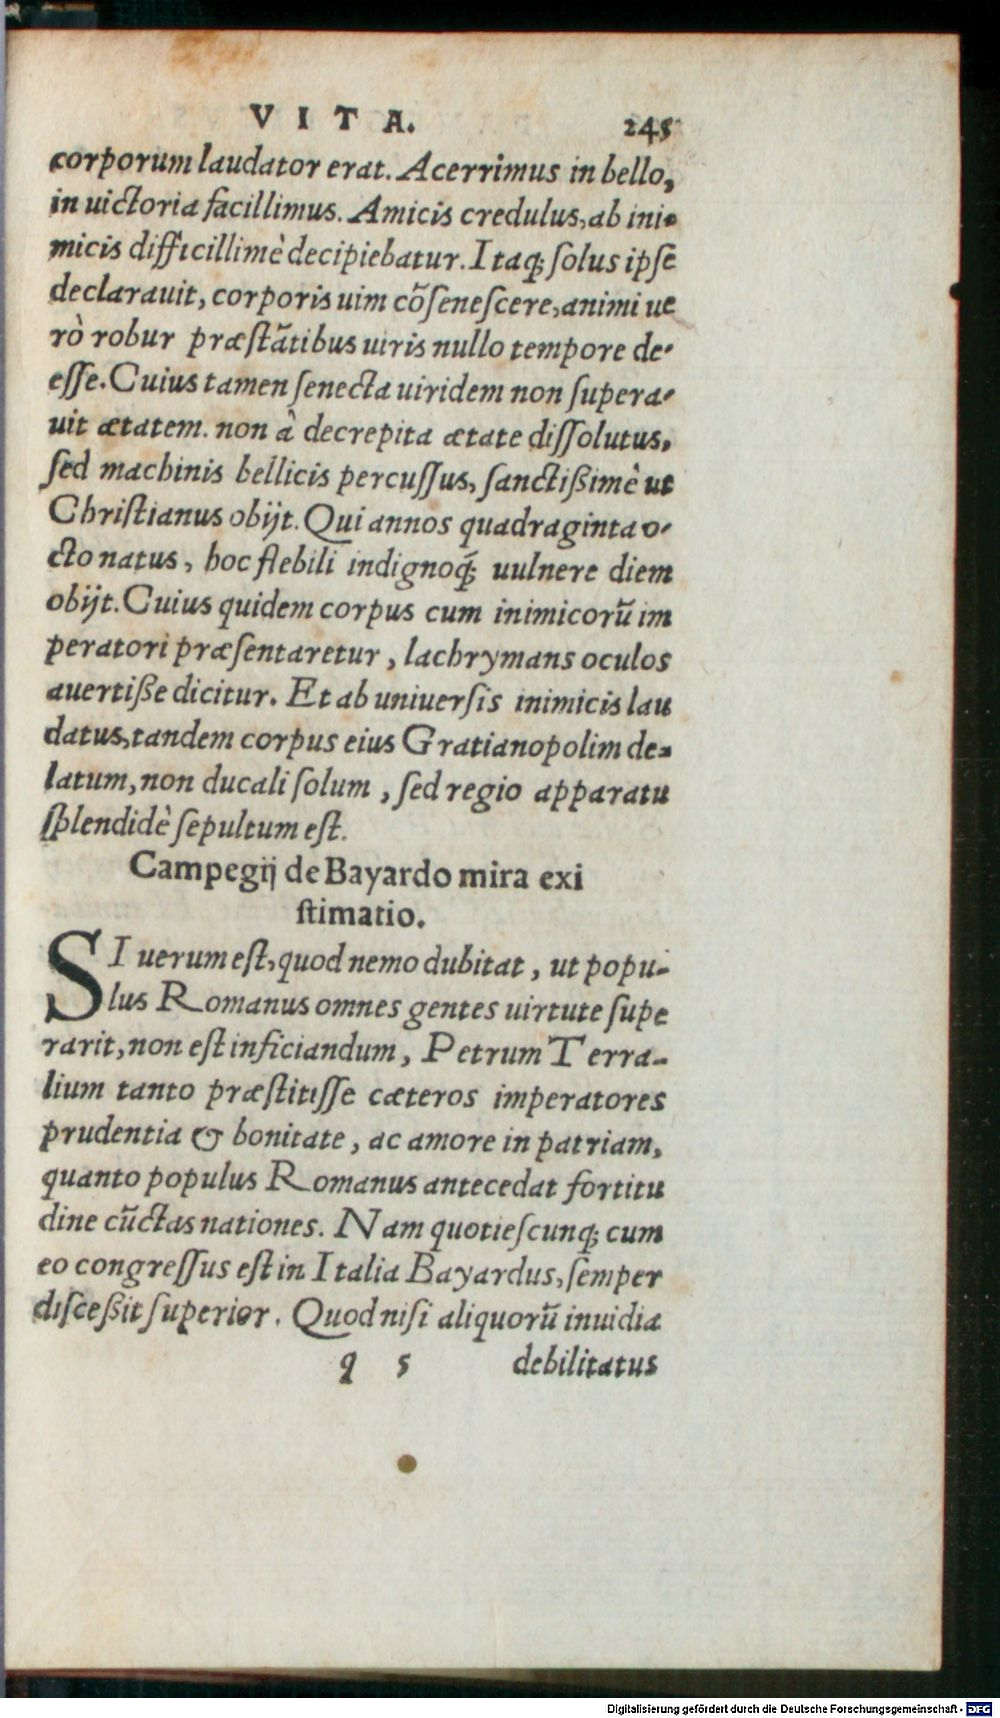 VITA. 245
corporum laudator erat. Acerrimus in bello,
in uictoria facillimus. Amicis credulus, ab ini-
micis difficillimè decipiebatur. Itaq; ſolus ipſe
declarauit, corporis uim cõſeneſcere, animi ue
rò robur præſtãtibus uiris nullo tempore de-
eſſe. Cuius tamen ſenecta uiridem non ſupera-
uit ætatem. non à decrepita ætate diſſolutus,
ſed machinis bellicis percuſſus, ſanctißimè ut
Chriſtianus obijt. Qui annos quadraginta o-
cto natus, hoc flebili indignoq́; uulnere diem
obijt. Cuius quidem corpus cum inimicorũ im
peratori præſentaretur, lachrymans oculos
auertiße dicitur. Et ab uniuerſis inimicis lau
datus, tandem corpus eius Gratianopolim de-
latum, non ducali ſolum, ſed regio apparatu
ſplendidè ſepultum eſt.
Campegij de Bayardo mira exi
ſtimatio.
SI uerum eſt, quod nemo dubitat, ut popu-
lus Romanus omnes gentes uirtute ſupe
rarit, non eſt inficiandum, Petrum Terra-
lium tanto præſtitiſſe cæteros imperatores
prudentia & bonitate, ac amore in patriam,
quanto populus Romanus antecedat fortitu
dine cũctas nationes. Nam quotieſcunq; cum
eo congreſſus eſt in Italia Bayardus, ſemper
diſceßit ſuperior. Quod niſi aliquorũ inuidia
q 5 debilitatus
Digitalisierung gefördert durch die Deutsche Forschungsgemeinschaft - DFG